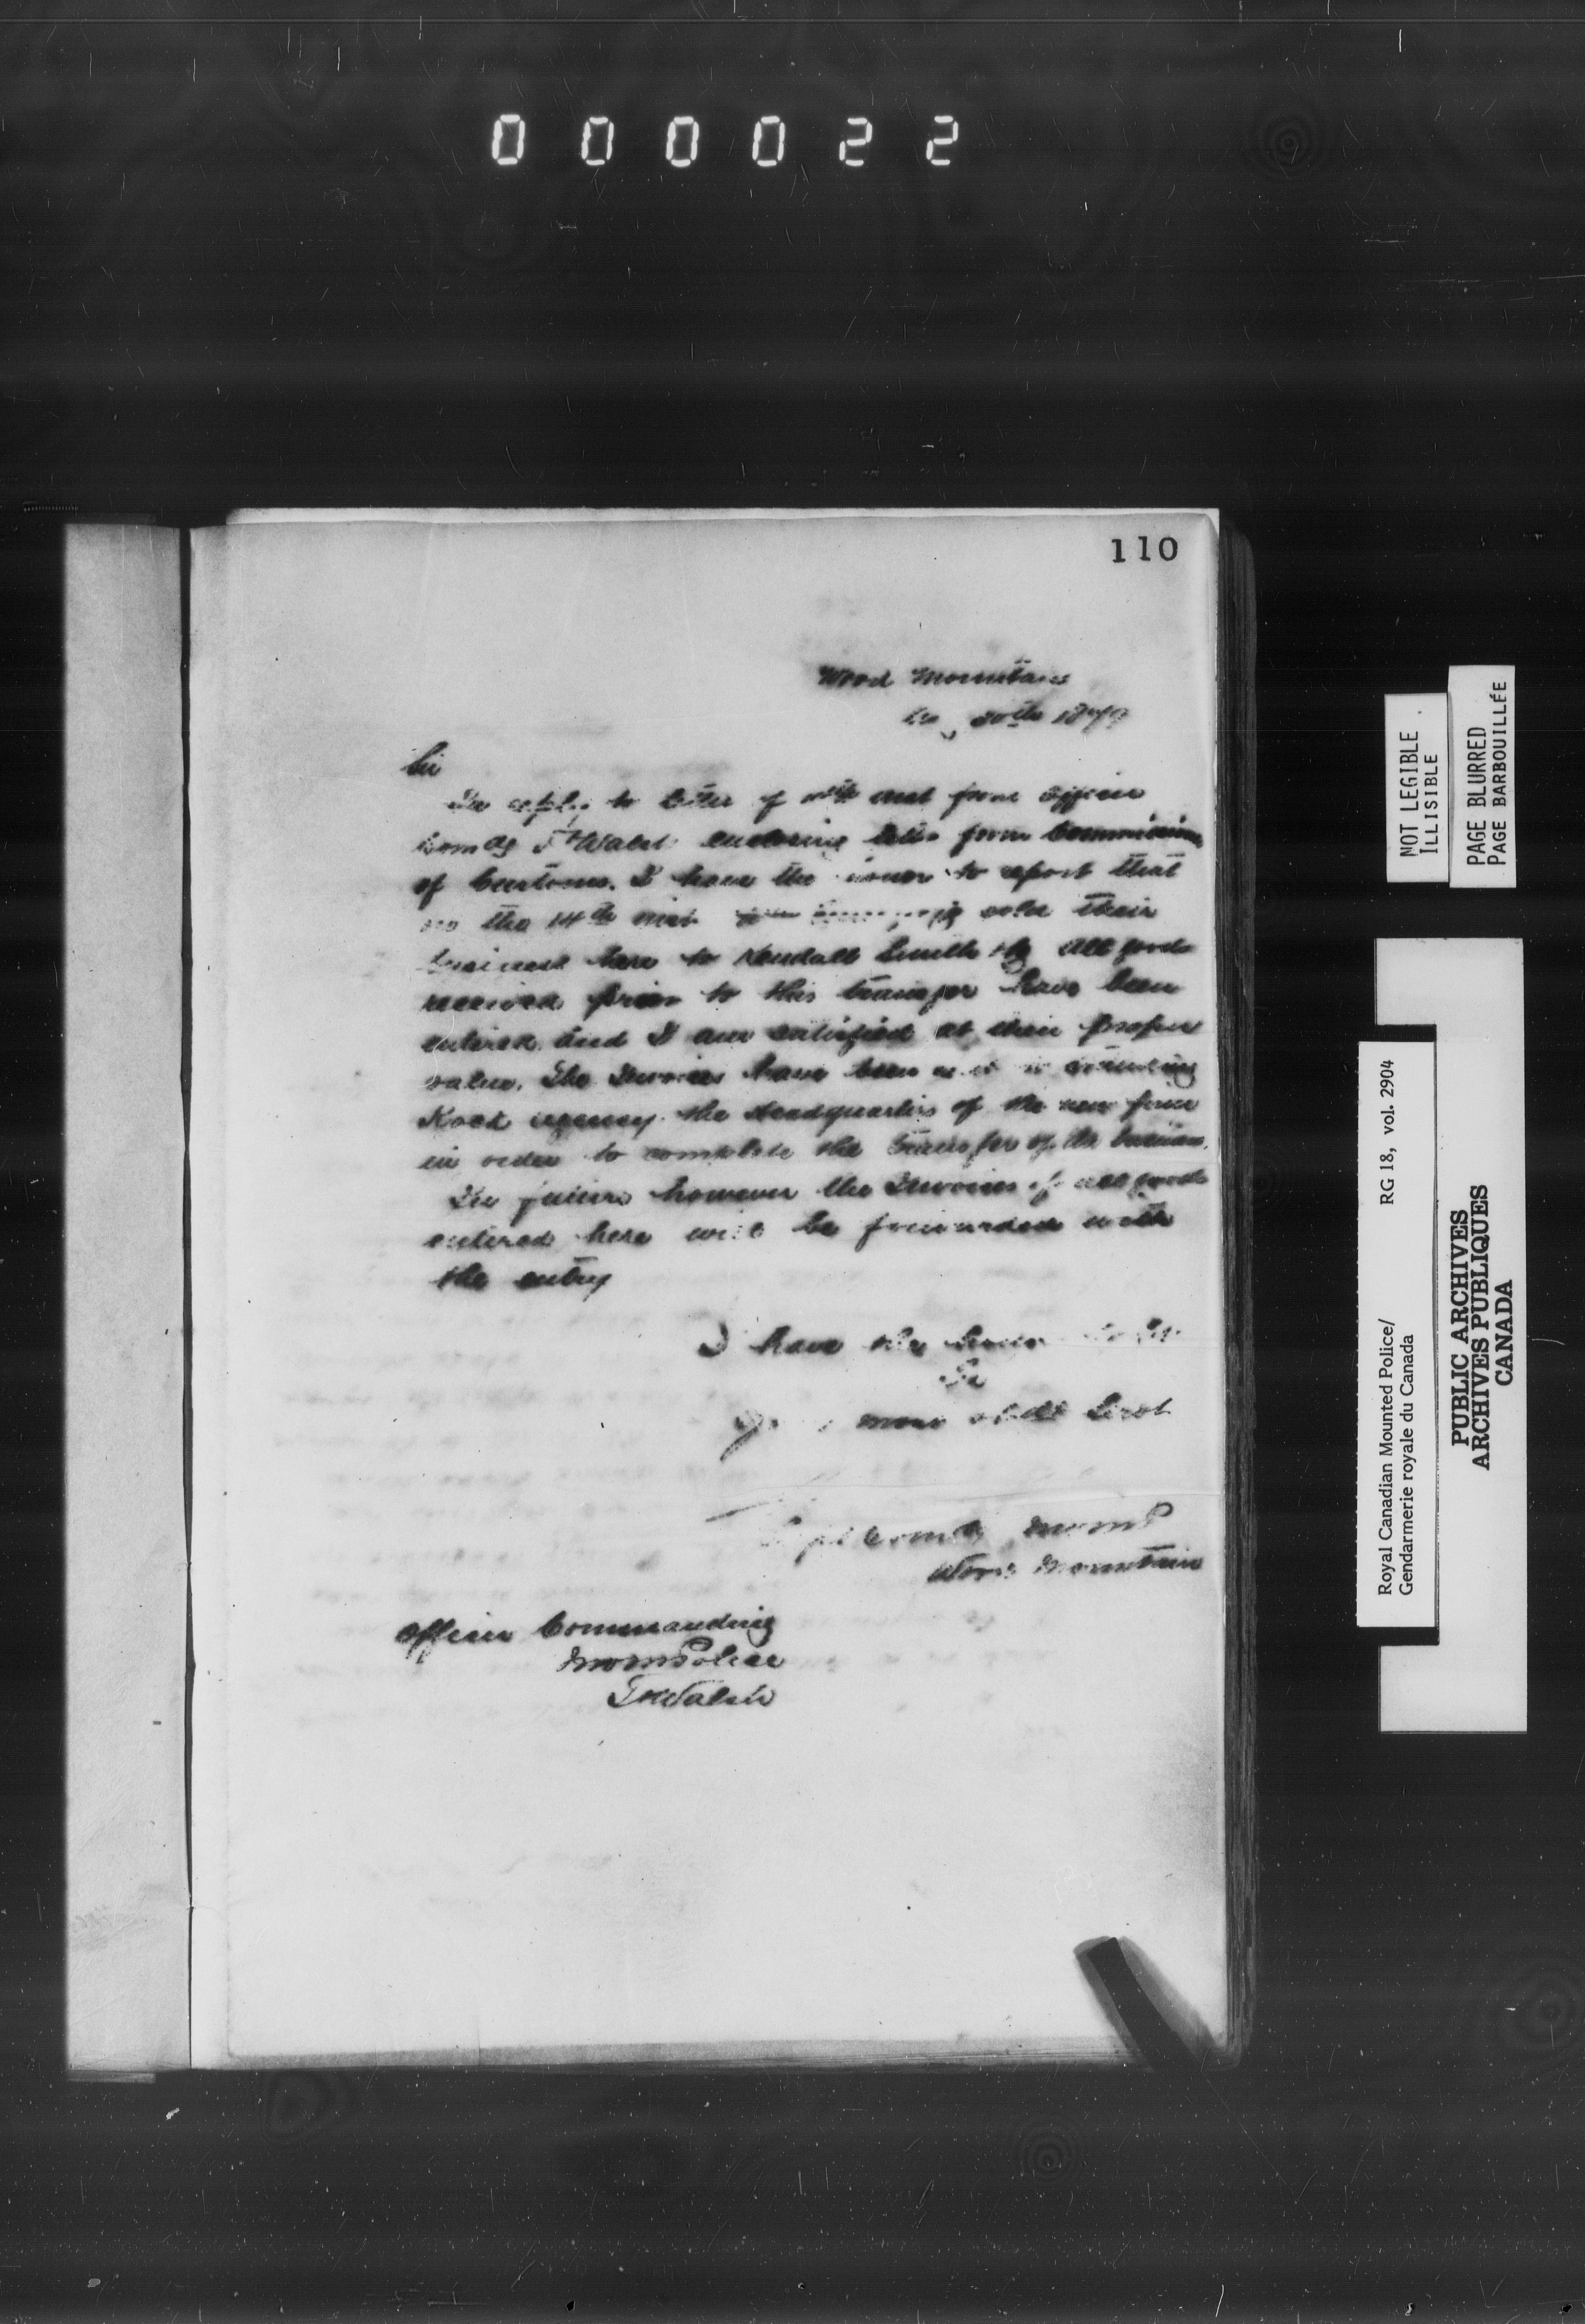 000022
110
Wood Mountain
20th 1879
Sir
In reply to letter of inst from officer
Comdg Ft Walsh enclosing letter from Commissioner
of Customs. I have the honor to report that
on the 14th inst sold their
business here to Kendall Smith all goods
received prior to this transfer have been
entered and I am satisfied at their proper
value. The Invoices have been
agency the Headquarters of the new firm
in order to complete the transfer of the business.
In future however the Invoices of all goods
entered here will be forwarded with
the entry
I have the honor to be
Sir
most obdt Servt
Comdg NWMP
Wood Mountain
Officer Commanding
NWM Police
Ft Walsh
NOT LEGIBLE
ILLISIBLE
PAGE BLURRED
PAGE BARBOUILLÉE
Royal Canadian Mounted Police/ RG 18, vol. 2904
Gendarmerie royale du Canada
PUBLIC ARCHIVES
ARCHIVES PUBLIQUES
CANADA